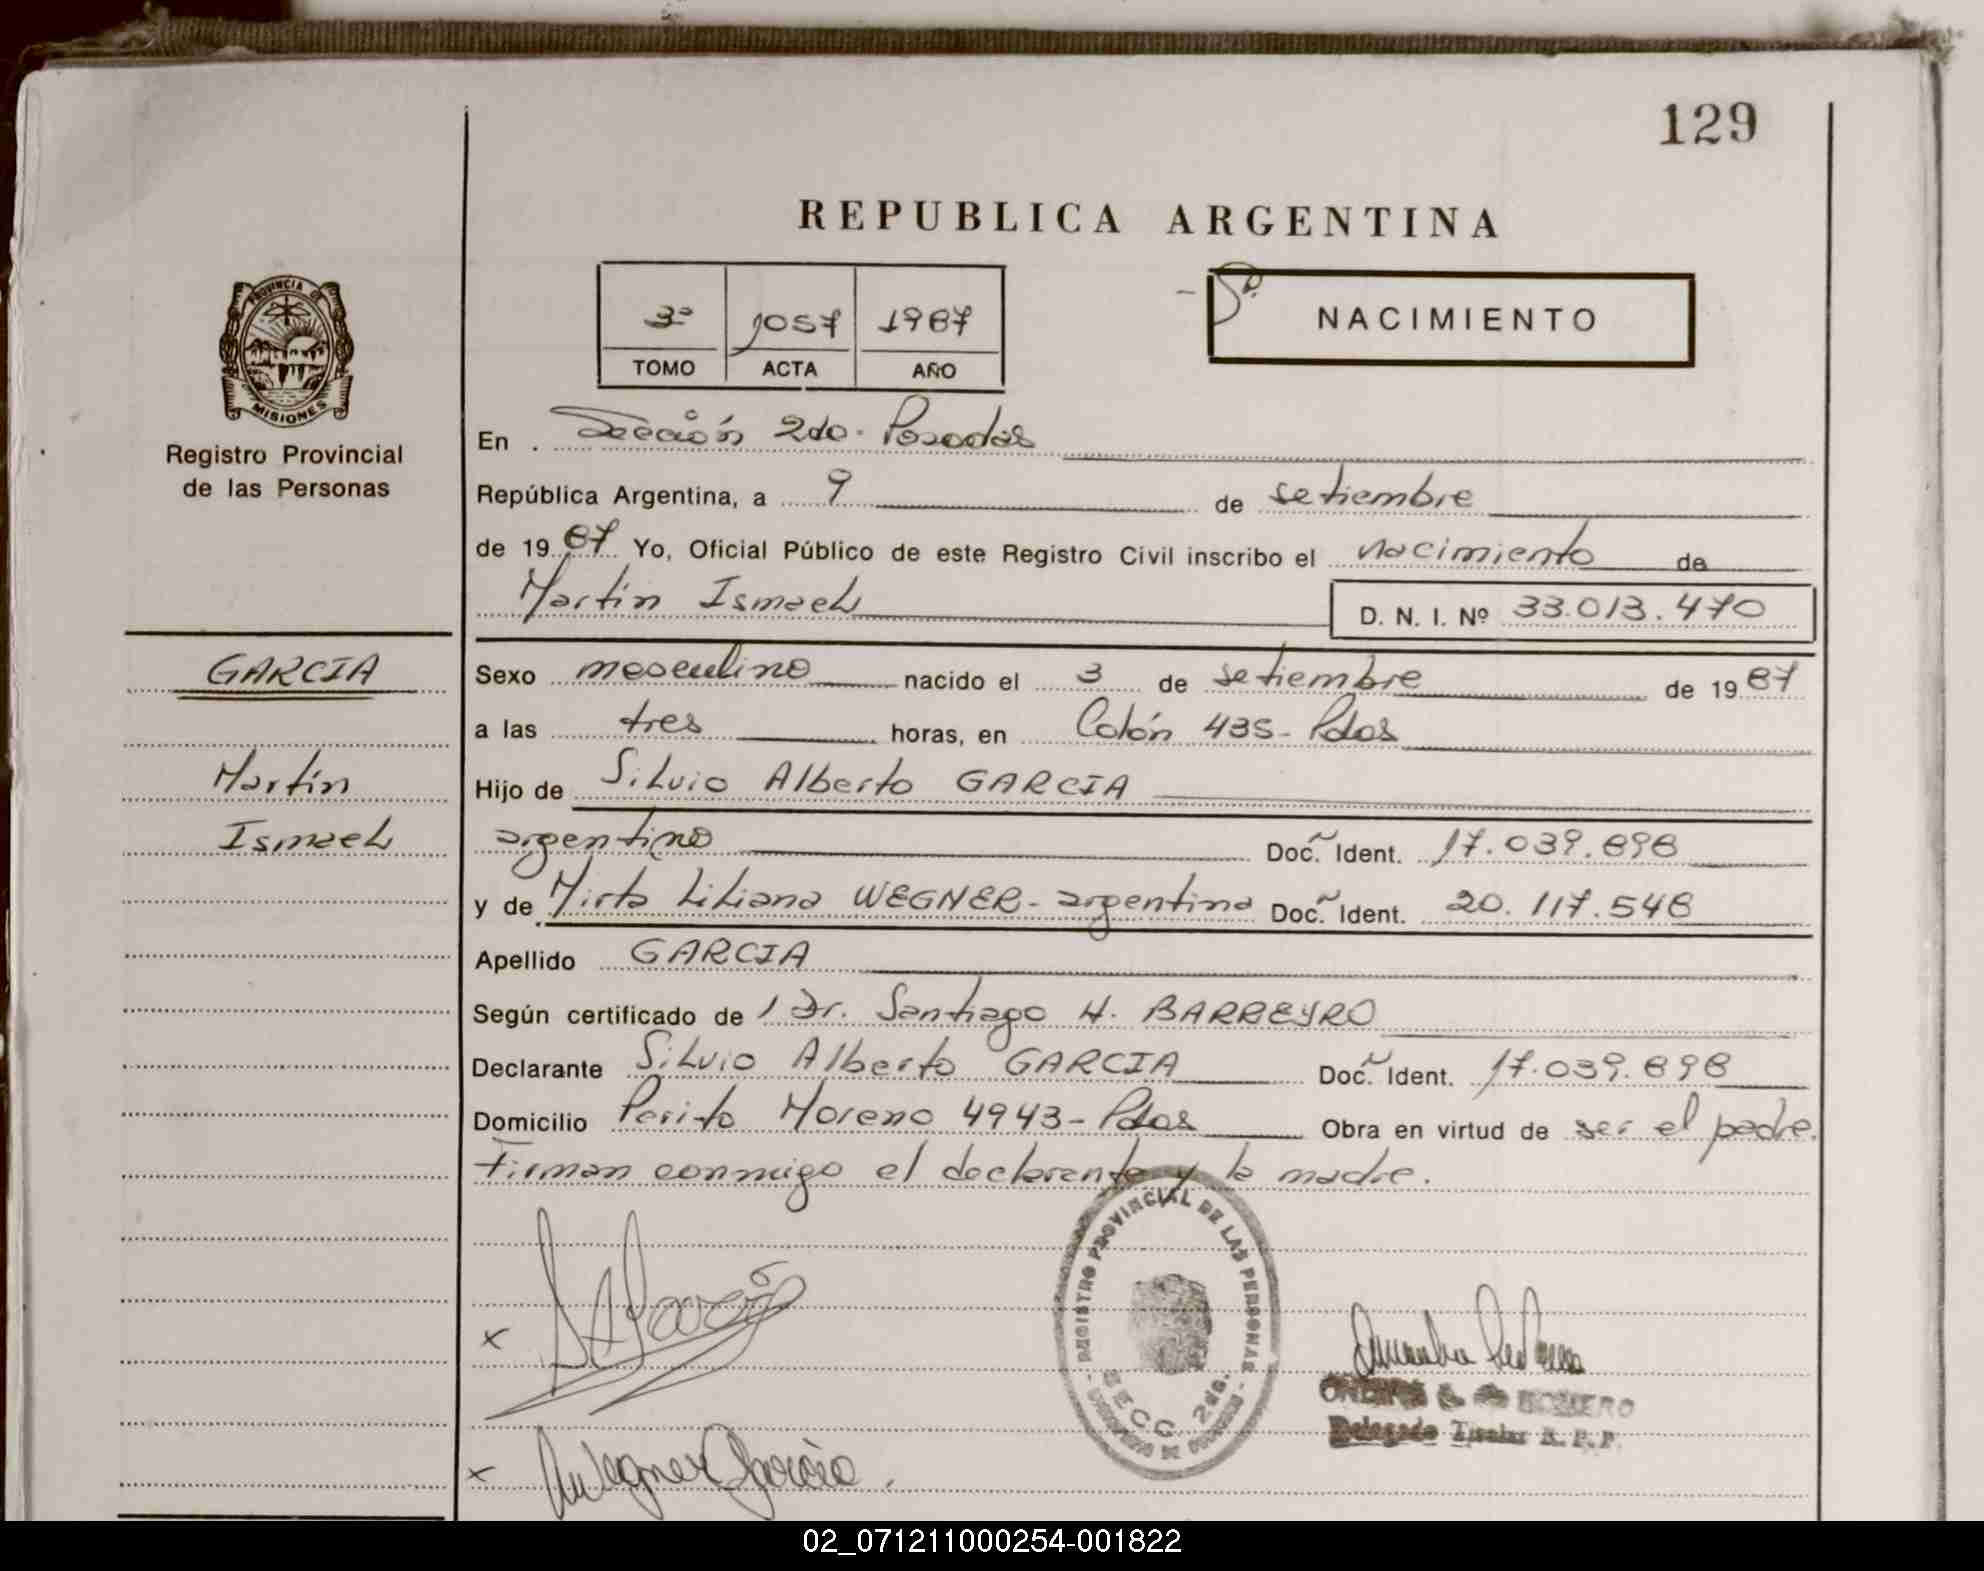 129
REPUBLICA ARGENTINA
PROVINCIA DE
MISIONES
Registro Provincial
de las Personas
3º 1057 1987
TOMO ACTA AÑO
NACIMIENTO
En Sección 2da. Posadas
República Argentina, a 9 de setiembre
de 1987 Yo, Oficial Público de este Registro Civil inscribo el nacimiento de
Martín Ismael D. N. I. Nº 33.013.470
GARCIA
Martín
Ismael
Sexo masculino nacido el 3 de setiembre de 1987
a las tres horas, en Colón 435- Pdas
Hijo de Silvio Alberto GARCIA
argentino Doc. Ident. 17.039.898
y de Mirta Liliana WEGNER- argentina Doc. Ident. 20.117.548
Apellido GARCIA
Según certificado de 1 Dr. Santiago H. BARREYRO
Declarante Silvio Alberto GARCIA Doc. Ident. 17.039.898
Domicilio Perito Moreno 4943- Pdas Obra en virtud de ser el padre.
Firman conmigo el declarante y la madre.
REGISTRO PROVINCIAL DE LAS PERSONAS
SECC. 2da.
x
ROMERO
Delegado Titular R. P. P.
x Wegner García.
02_071211000254-001822